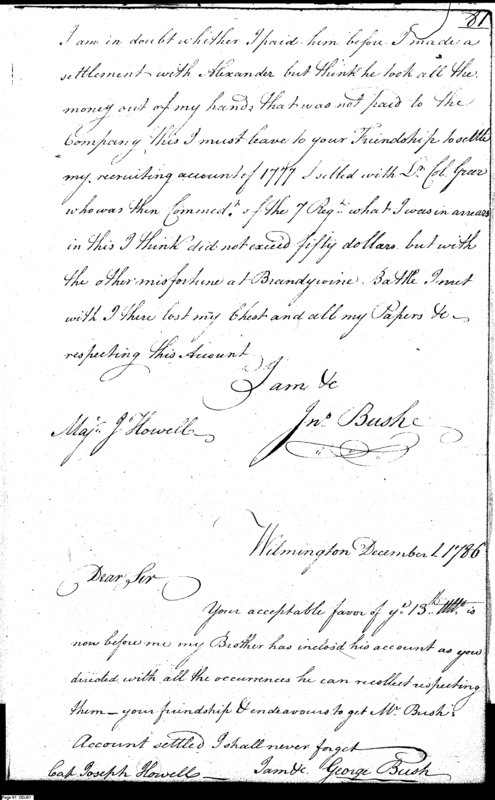 81
I am in doubt whither I paid him before I made a
settlement with Alexander but think he took all the
money out of my hands that was not paid to the
Company this I must leave to your Friendship to settle
my recruiting account of 1777 I setled with Lt. Col. Greer
who was then Commedt. of the 7 Regt. what I was in arrears
in this I think did not exceed fifty dollars but with
the other misfortune at Brandywine Battle I met
with I there lost my Chest and all my Papers &c
respecting this Account
I am &c
Jno. Bush
Majr. Jo. Howell
Wilmington December 1. 1786
Dear Sir
Your acceptable favor of ye. 13th is
now before me my Brother has inclosd his account as you
directed with all the occurrences he can recollect respecting
them — your friendship & endeavours to get Mr. Bush's
Account settled I shall never forget
Cap Joseph Howell I am &c. George Bush